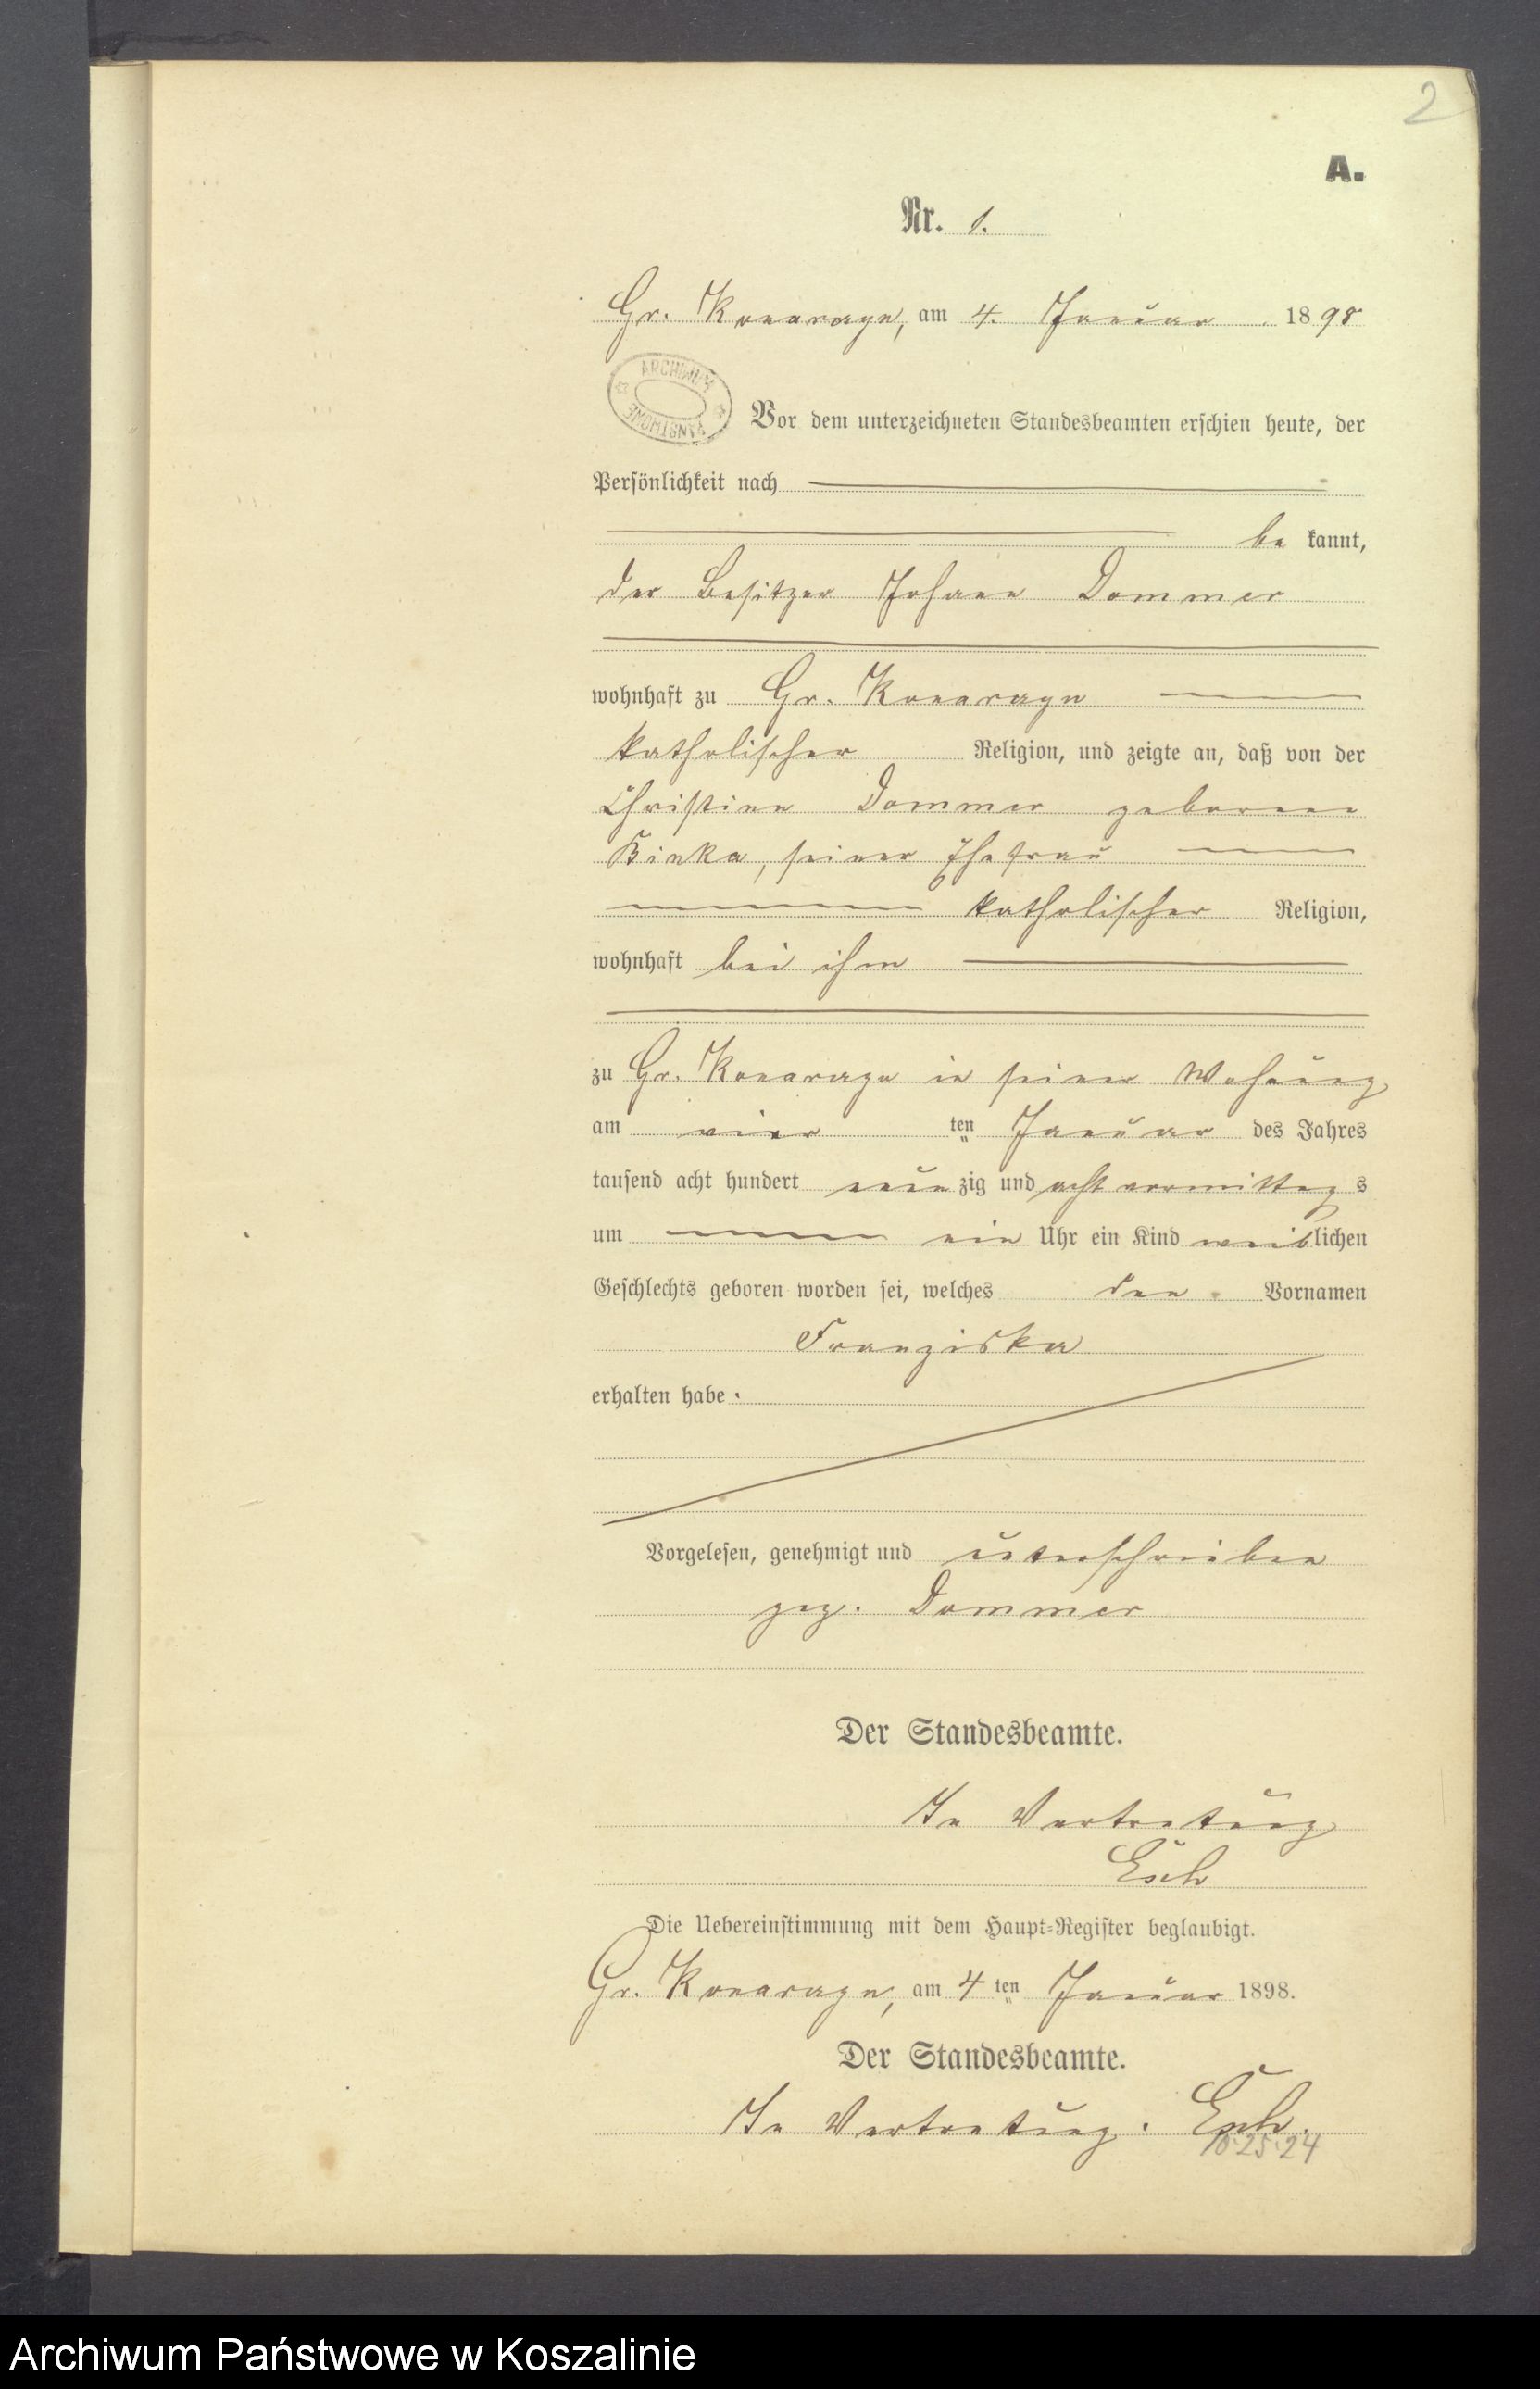 2
A.
Nr. 1.
Gr. Konarzyn, am 4. Januar 1898
ARCHIWUM
PAŃSTWOWE
Vor dem unterzeichneten Standesbeamten erschien heute, der
Persönlichkeit nach
be kannt,
der Besitzer Johann Dommer
wohnhaft zu Gr. Konarzyn
katholischer Religion, und zeigte an, daß von der
Christine Dommer geborene
Binka, seiner Ehefrau
katholischer Religion,
wohnhaft bei ihm
zu Gr. Konarzyn in seiner Wohnung
am vier ten Januar des Jahres
tausend acht hundert neun zig und acht vormittag s
um ein Uhr ein Kind weiblichen
Geschlechts geboren worden sei, welches den Vornamen
Franziska
erhalten habe.
Vorgelesen, genehmigt und unterschrieben
gez. Dommer
Der Standesbeamte.
In Vertretung
Esch
Die Uebereinstimmung mit dem Haupt-Register beglaubigt.
Gr. Konarzyn, am 4 ten Januar 1898.
Der Standesbeamte.
In Vertretung. Esch.
10.25.24
Archiwum Państwowe w Koszalinie